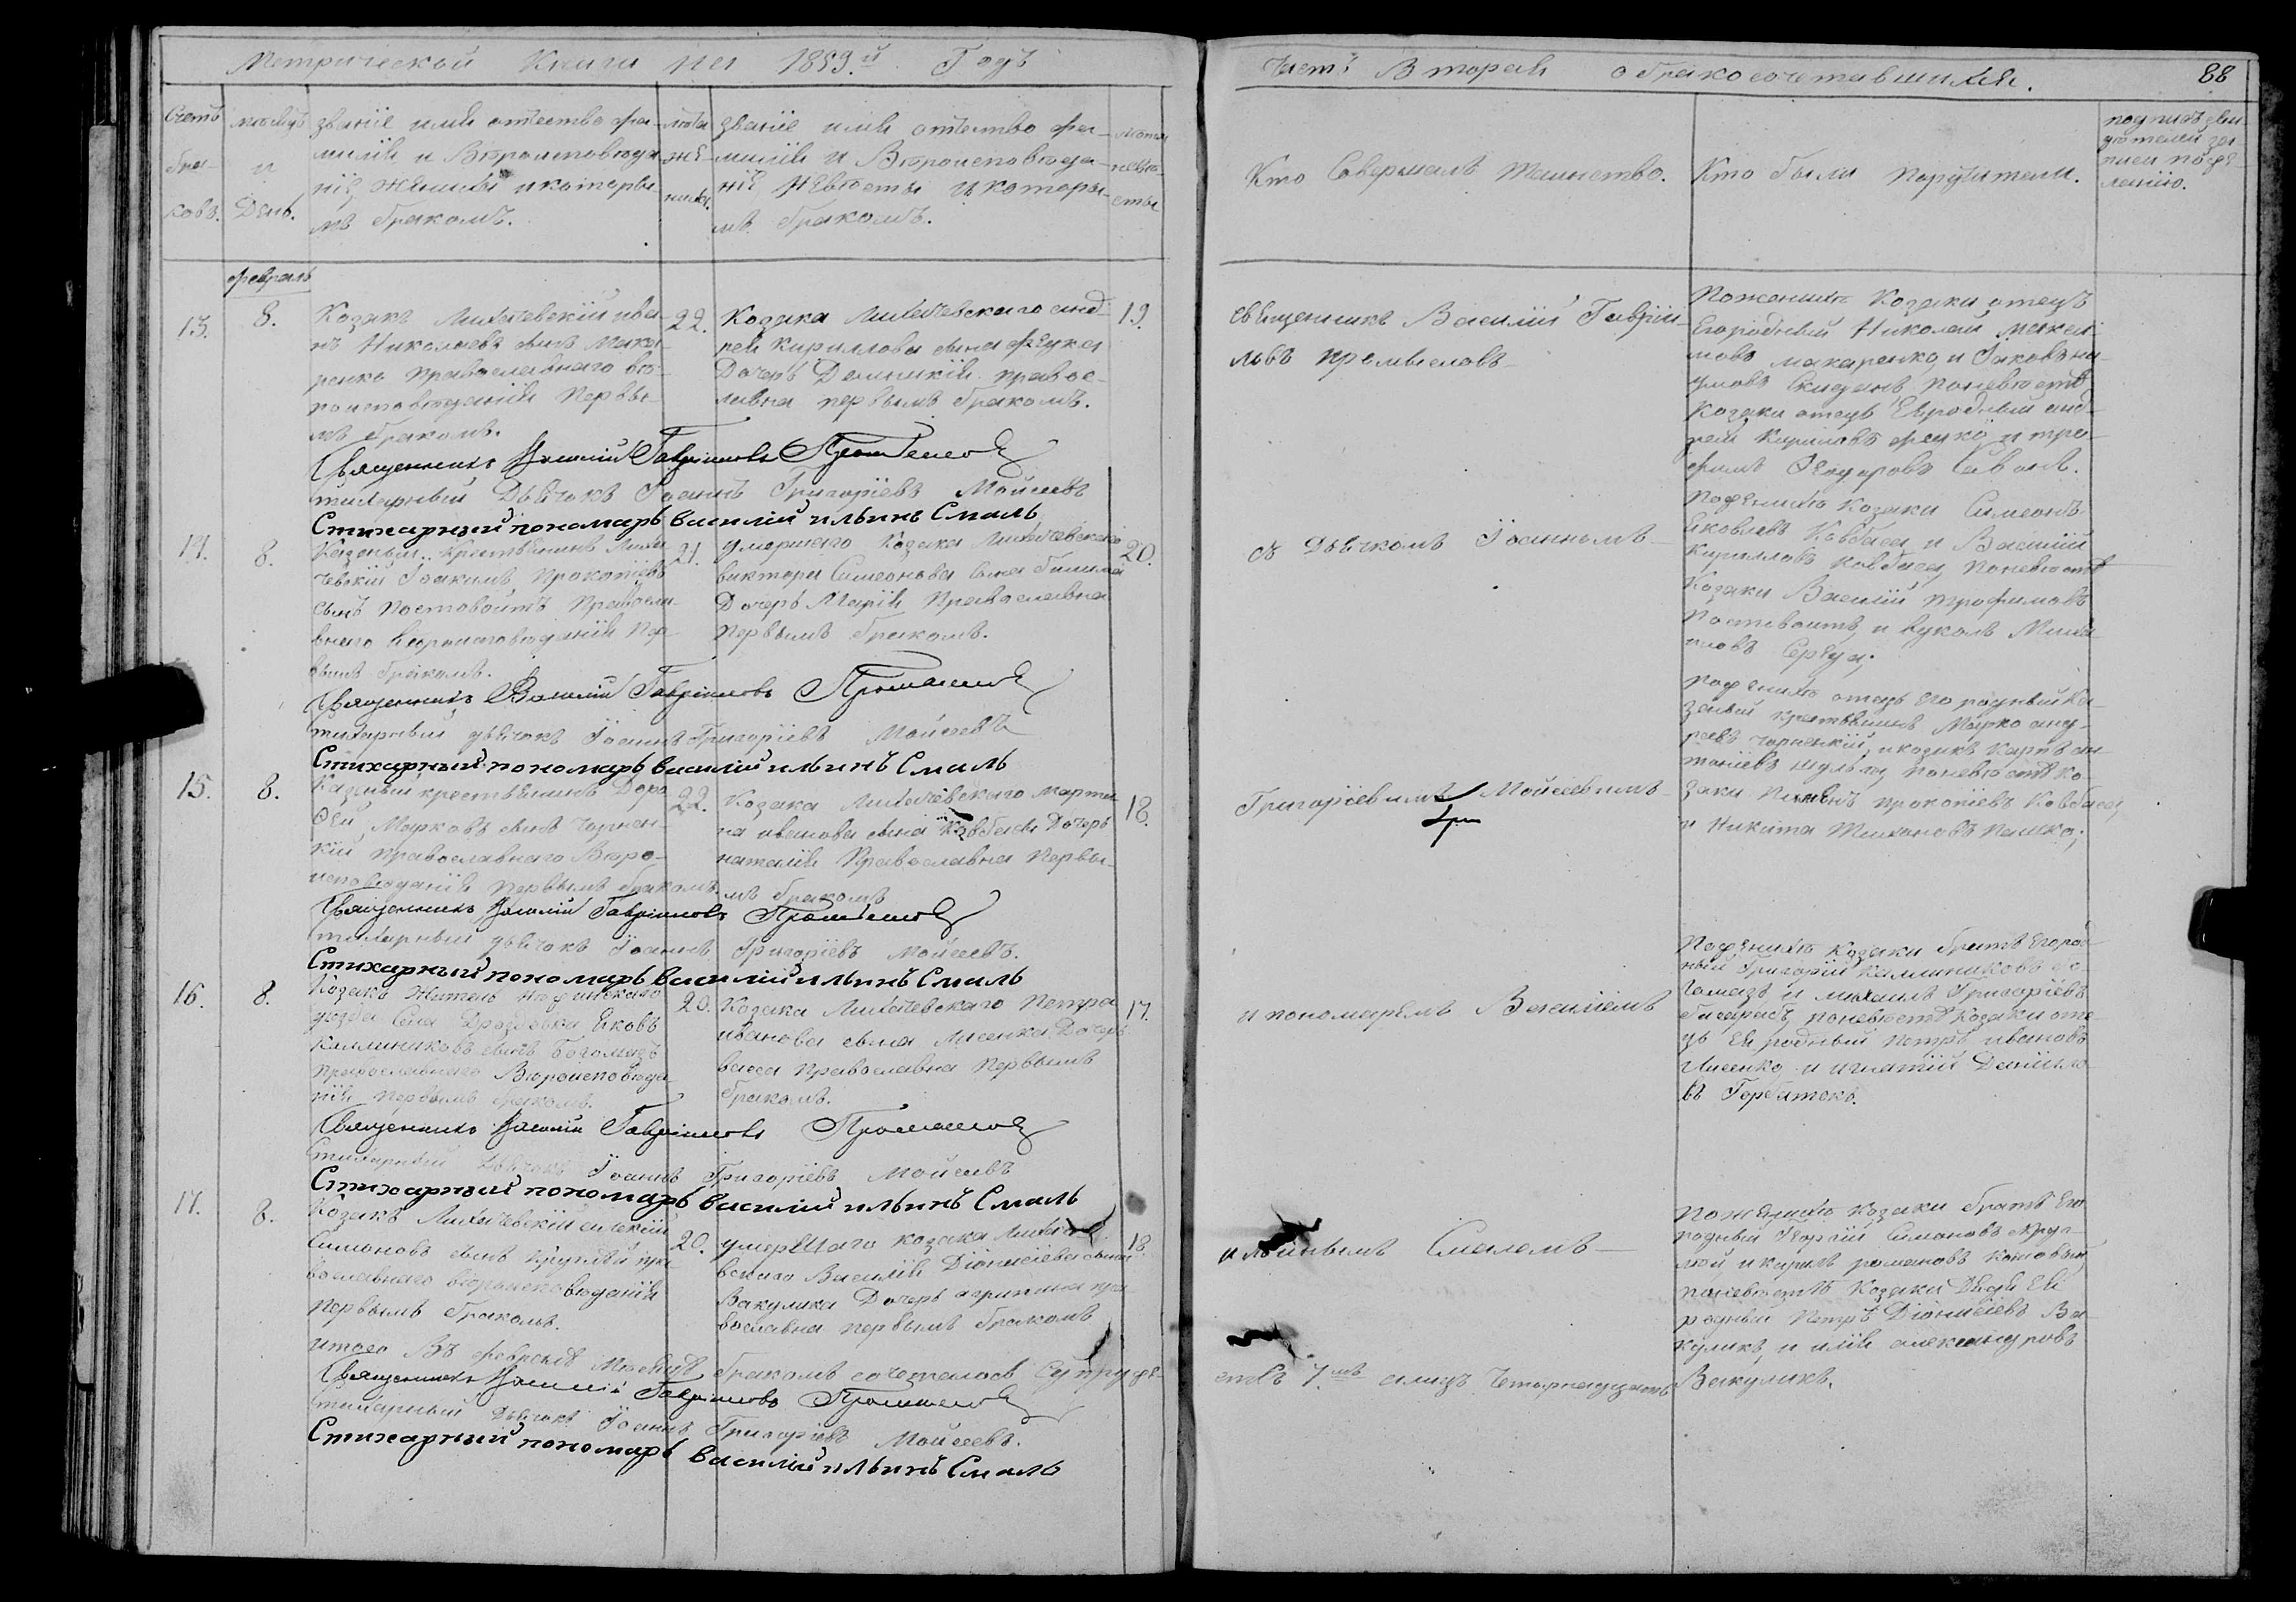 Метрической Книги на 1859.й Годъ
Счетъ бра-ковъ.
мѣсяцъ и День.
званіе имя отчество фа-
милія и Вѣроисповѣда
ніе, жениха и которы
мъ бракомъ.
лѣта же-ниха.
званіе имя отчество фа-
милія и Вѣроисповѣда-
ніе Невѣсты и которы-
мъ бракомъ.
лѣта невѣ-сты
Часть Вторая о бракосочетавшихся.
88
Кто Совершалъ Таинство.
Кто были Поручители.
подпись сви-
дѣтелей за-
писи по же-
ланію.
февраль
13.
8.
Козакъ Лихачевскій ива-
нъ Николаевъ сынъ Мака-
ренко православнаго вѣ-
роисповѣданія Первы-
мъ бракомъ.
22.
Козака Лихачевскаго анд-
рея Кириллова сына
Дочерь православ-
первымъ бракомъ.
19.
Священникъ Василій Гавріи-
ловъ
По женихѣ Козаки отецъ
Егородный Николай
Макаренко, и Іаковъ
поневѣстѣ
Козаки отецъ Еяродный анд-
рей Кириловъ и тро-
фимъ Ѳеодоровъ
Священникъ Василій Гавріиловъ
стихарный Дьячокъ Іоаннъ Григоріевъ Мойсеевъ
Стихарный пономарь василій ильинъ Смаль
14.
8.
Казеный Крестьянинъ Лиха
чевскій Іоакимъ Прокопіевъ
сынъ Постовойтъ Правосла-
внаго вѣроисповѣданія Пер-
вымъ бракомъ.
21.
умершаго Козака Лихачевскаго
виктора Симеонова сына
Дочерь Марія Православна
первымъ бракомъ.
20.
съ Дьячкомъ Іоанномъ
Поженихѣ Козаки Симеонъ
Яковлевъ Ковбаса и Василій
Кирилловъ Ковбаса, поневѣстѣ
Козаки Василій трофимовъ
Постовойтъ, и вуколъ
Середа;
Священникъ Василій Гавріиловъ
стихарный дьячокъ Іоаннъ Григоріевъ Мойсеевъ
Стихарный пономарь василій ильинъ Смаль
15.
8.
Казеный крестьянинъ Доро
ѳей Марковъ сынъ Чорнен-
кій православнаго Вѣро-
исповѣданія первымъ бракомъ.
22.
Козака Лихачевскаго марти
на иванова сына Ковбасы Дочерь
наталія Православна Первы-
мъ бракомъ
18.
Григоріевымъ Мойсеевымъ
поженихѣ отецъ его родный Ка-
зеный крестьянинъ Марко анд-
реевъ чорненкій, и козакъ Карпъ ан-
тоніевъ поневѣстѣ ко-
заки прокопіевъ Ковбаса,
и Никита
Священникъ Василій Гавріиловъ
стихарный дьячокъ Іоаннъ Григоріевъ Мойсеевъ.
Стихарный пономарь василій ильинъ Смаль
16.
8.
Козакъ Житель Нѣжинскаго
уѣзда Села Дроздовка Яковъ
Каллиниковъ сынъ Богомазъ
православнаго Вѣроисповѣда
нія первымъ бракомъ.
20.
Козака Лихачевскаго Петра
иванова сына Лисенка Дочерь
васса православна Первымъ
бракомъ.
17.
и пономаремъ Василіемъ
Поженихѣ Козаки братъ Егород-
ный Григорій Каллиниковъ Бо-
гомазъ и михаилъ Григоріевъ
поневѣстѣ Козаки оте
цъ Ея родный Петръ ивановъ
Лисенко и игнатій Даніило-
въ Горбатокъ.
Священникъ Василій Гавріиловъ
Стихарный Дьячокъ Іоаннъ Григоріевъ Мойсеевъ
Стихарный пономарь василій ильинъ Смаль
17.
8.
Козакъ Лихачевскій алексій
Симоновъ сынъ пра
вославнаго вѣроисповѣданія
Первымъ бракомъ.
20.
умершаго козака Лихаче
вскаго Василія Діонисіева сына
Вакулика Дочерь агрипина пра
вославна первымъ бракомъ
18.
ильинымъ Смалемъ
Поженихѣ козаки братъ Его
родный Георгій Симоновъ
и кирилъ романовъ
поневѣстѣ Козаки Дядя Ея
родный Петръ Діонисіевъ Ва
куликъ, и илія александровъ
Вакуликъ.
итого Въ февралѣ Мѣсяцѣ бракомъ сочеталось Супруже-
ствъ 7мъ а лицъ Четырнадцать
Священникъ Василій Гавріиловъ
стихарный Дьячокъ Іоаннъ Григоріевъ Мойсеевъ.
Стихарный пономарь василій ильинъ Смаль